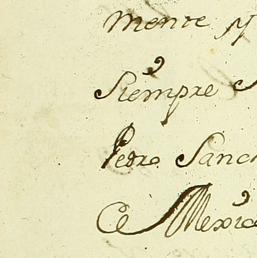 mente y
Siempre
Pedro Sanc
Mexic